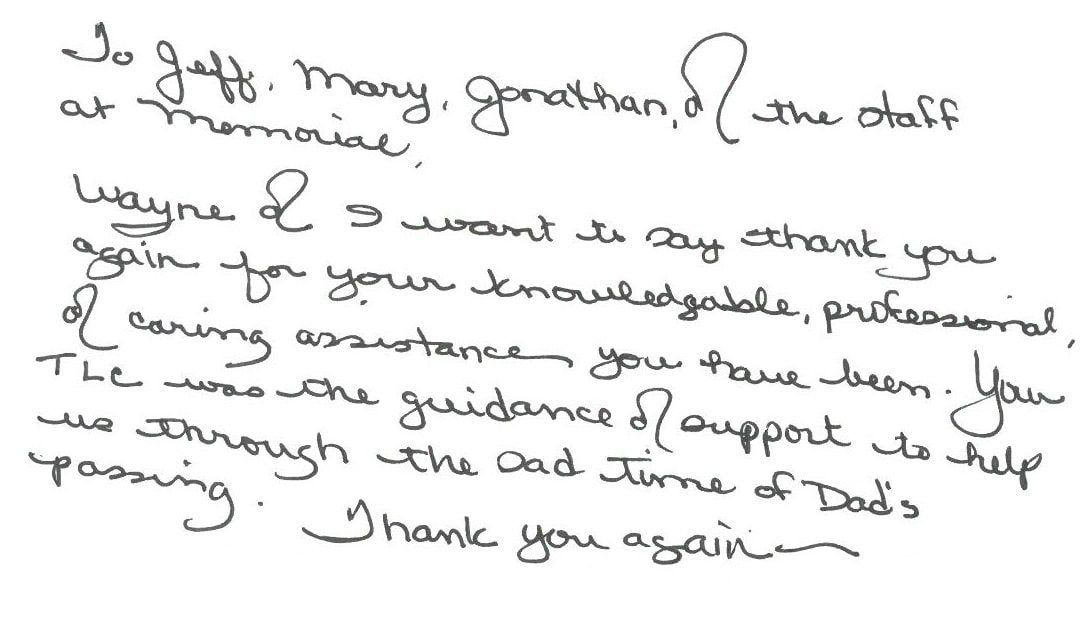 To Jeff, Mary, Jonathan, & the staff
at Memorial,
Wayne & I want to say thank you
again for your knowledgable, professional,
& caring assistance you have been. Your
TLC was the guidance & support to help
us through the sad time of Dad's
passing. Thank you again